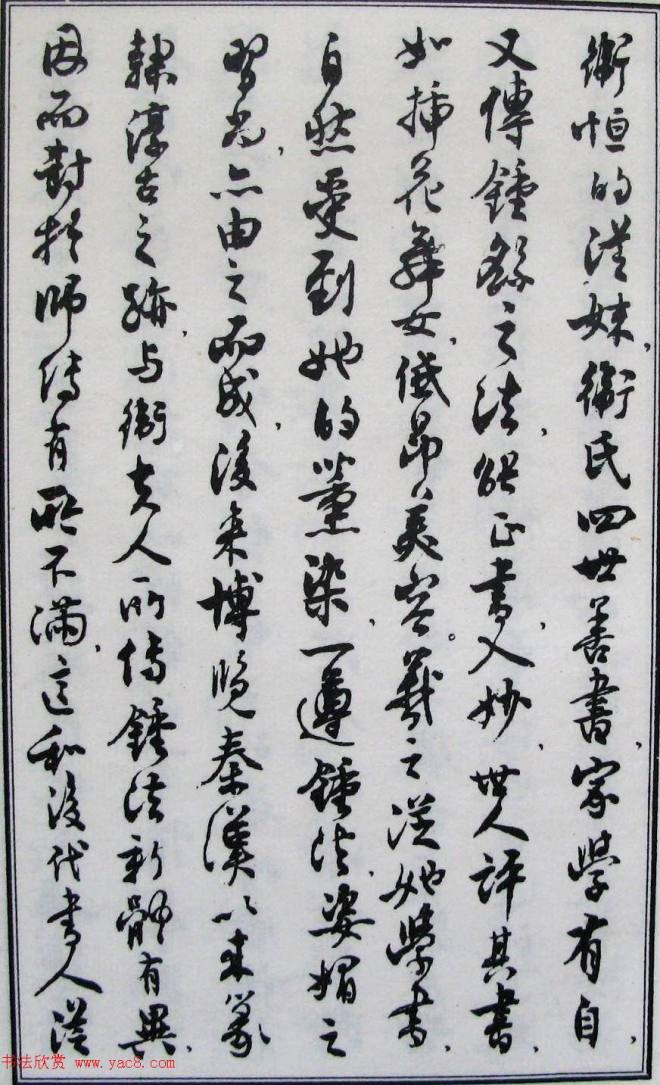 衛恒的従妹，衛氏四世善書，家学有自，
又傳鍾繇之法，能正書，入妙，世人評其書，
如插花舞女，低昂美容。羲之従她学書，
自然受到她的薰染，一遵鍾法，姿媚之
習尚，亦由之而成，後来博覽秦漢以来篆
隸淳古之跡，与衛夫人所传鍾法新體有異，
因而對於师传有所不满，這和後代書人従
书法欣赏 www.yac8.com